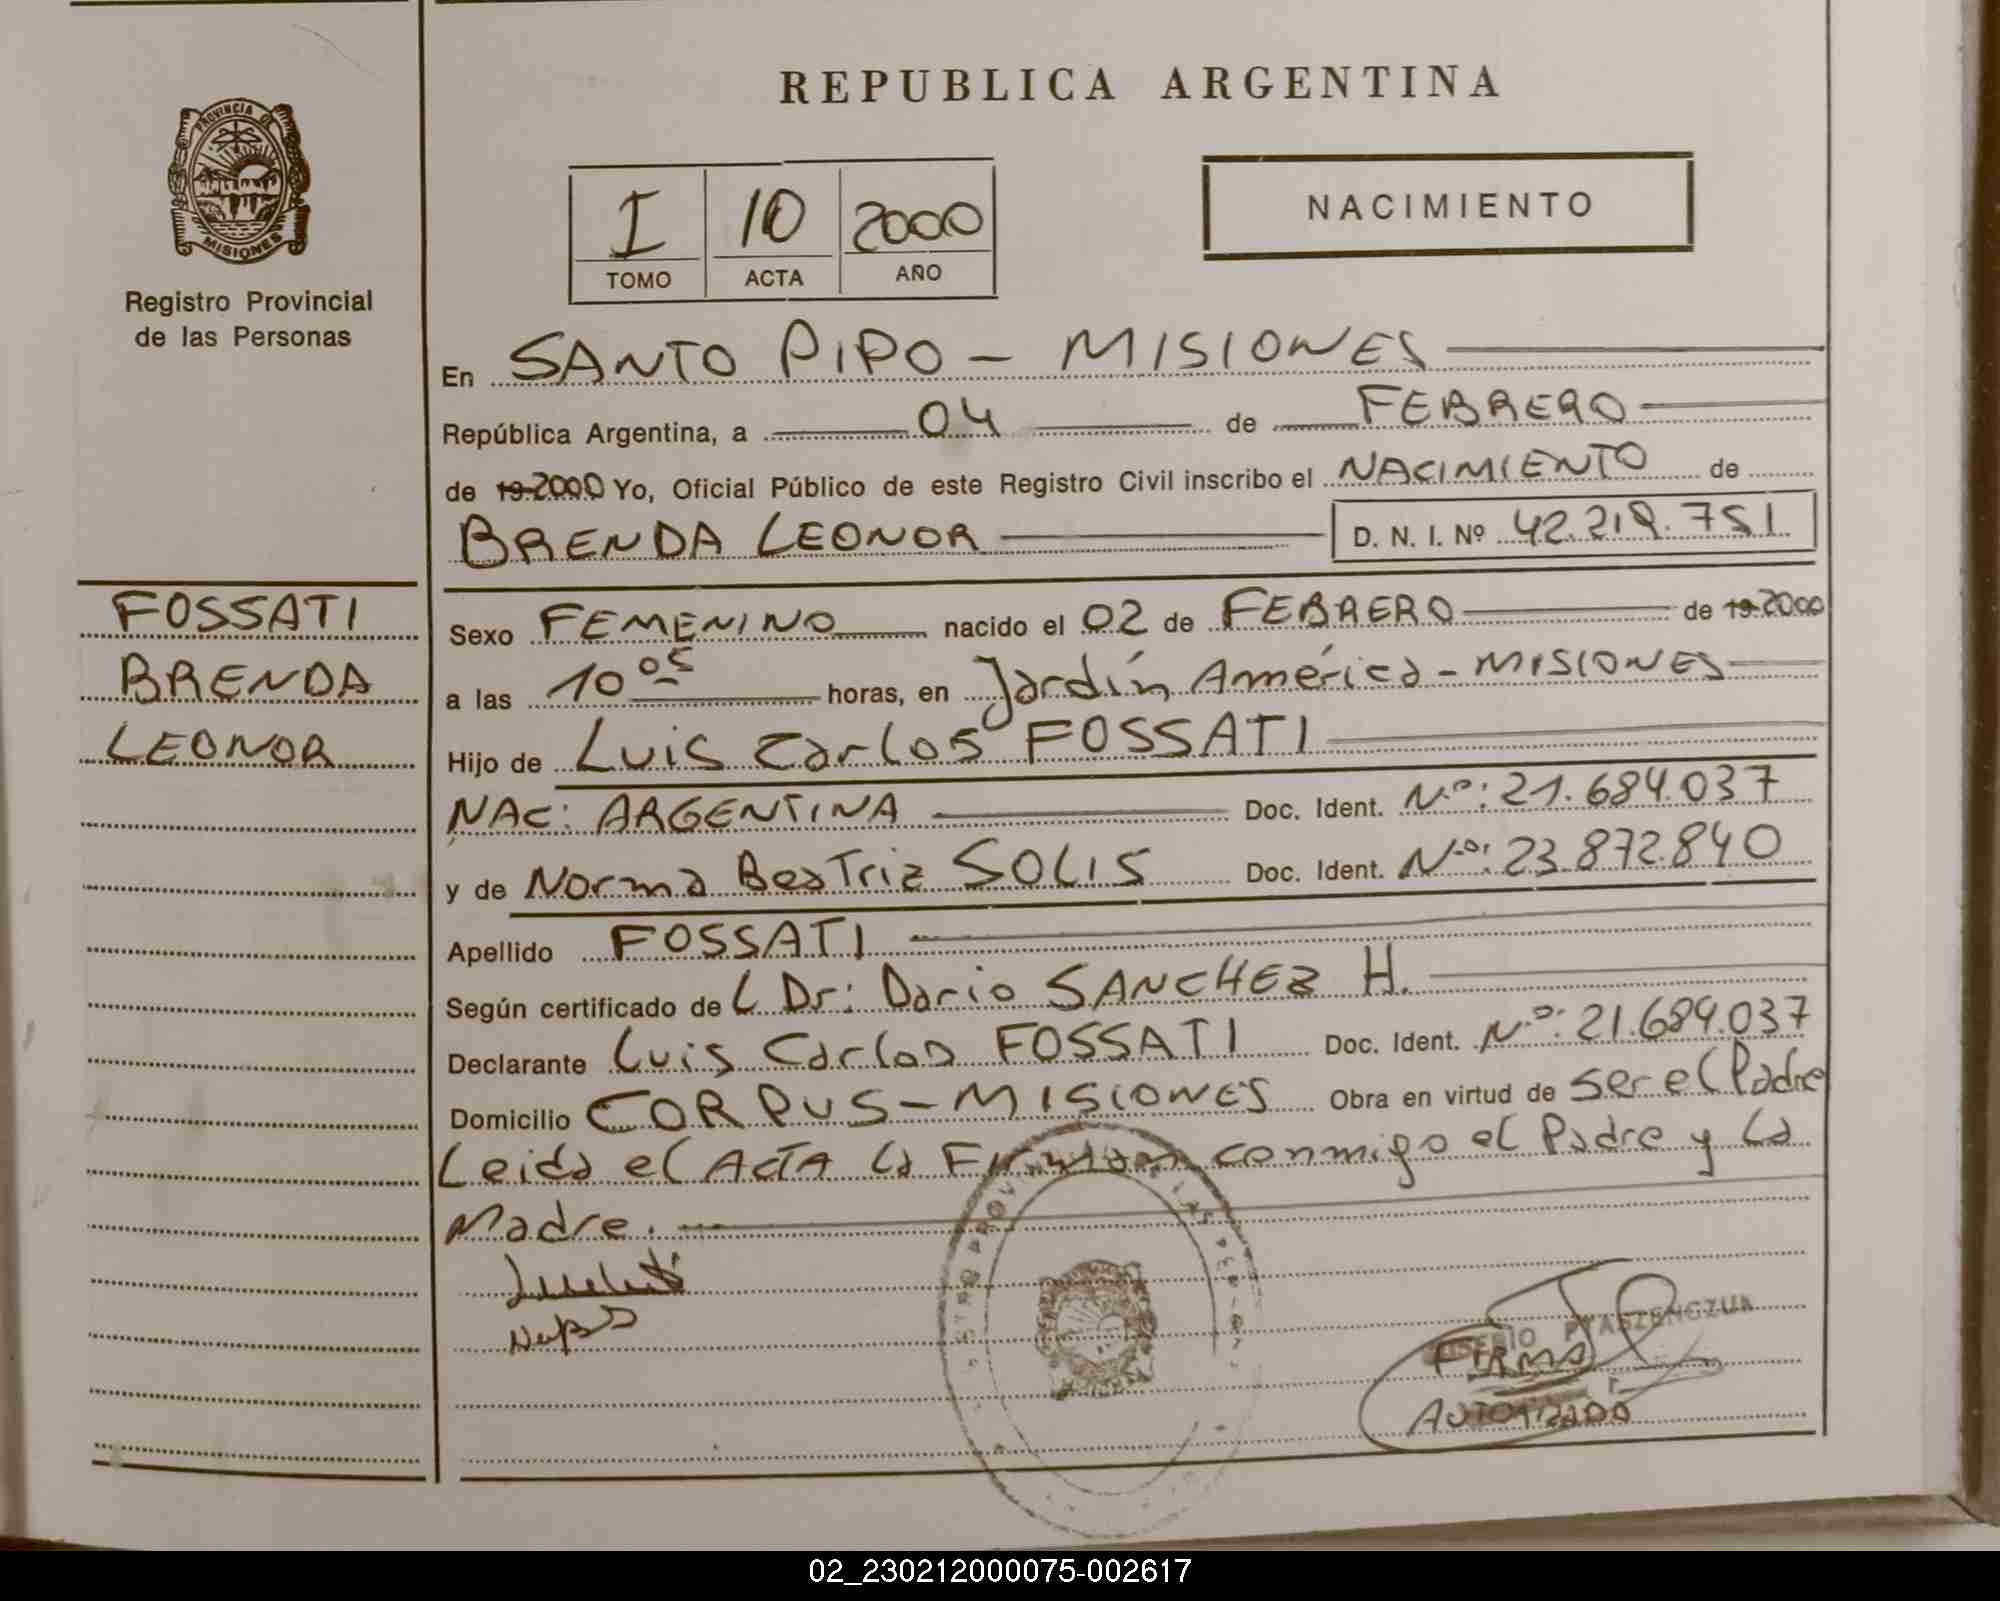 REPUBLICA ARGENTINA
PROVINCIA DE
MISIONES
Registro Provincial
de las Personas
I 10 2000
TOMO ACTA AÑO
NACIMIENTO
En SANTO PIPO - MISIONES
República Argentina, a 04 de FEBRERO
de 19 2000 Yo, Oficial Público de este Registro Civil inscribo el NACIMIENTO de
BRENDA LEONOR D. N. I. Nº 42.219.751
FOSSATI
BRENDA
LEONOR
Sexo FEMENINO nacido el 02 de FEBRERO de 19 2000
a las 10 05 horas, en Jardín América - MISIONES
Hijo de Luis Carlos FOSSATI
NAC: ARGENTINA Doc. Ident. Nº: 21.684.037
y de Norma Beatriz SOLIS Doc. Ident. Nº: 23.872.840
Apellido FOSSATI
Según certificado de L Dr: Dario SANCHEZ H.
Declarante Luis Carlos FOSSATI Doc. Ident. Nº: 21.684.037
Domicilio CORPUS - MISIONES Obra en virtud de ser el Padre
Leida el ACTA La Firman conmigo el Padre y La
Madre.
FIRMA
AUTORIZADO
02_230212000075-002617